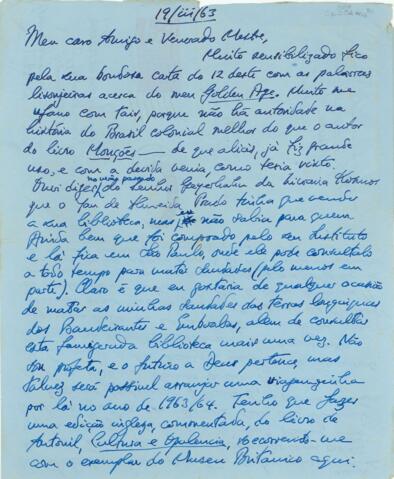 19/iii/63
Meu caro Amigo e Venerado Mestre,
Muito sensibilizado fico
pela sua bondosa carta do 12 deste com as palavras
lisonjeiras acerca do meu Golden Age. Muito me
ufano com tais, porque não há autoridade na
história do Brasil colonial melhor do que o autor
do livro Monções — de que aliás, já fiz grande
uso, e com a devida venia, como teria visto.
Ouvi dizer, no mês passado, do Senhor da Livraria Kosmos
que o Yan de Almeida Prado tinha que vender
a sua biblioteca, mas não sabia para quem
Ainda bem que foi comprado pelo seu Instituto
e lá fica em São Paulo, onde ele pode consultá-lo
a todo tempo para matar saudades (pelo menos em
parte). Claro é que eu gostaria de qualquer ocasião
de matar as minhas saudades das terras longínquas
dos Bandeirantes e Emboabas, alem de consultar
esta famigerada biblioteca mais uma vez. Não
sou profeta, e o futuro a Deus pertence, mas
talvez será possível arranjar uma viagenzinha
por lá no ano de 1963/64. Tenho que fazer
uma edição inglesa, comentada, do livro de
Antonil, Cultura e Opulencia, recorrendo-me
com o exemplar do Museu Britanico aqui.